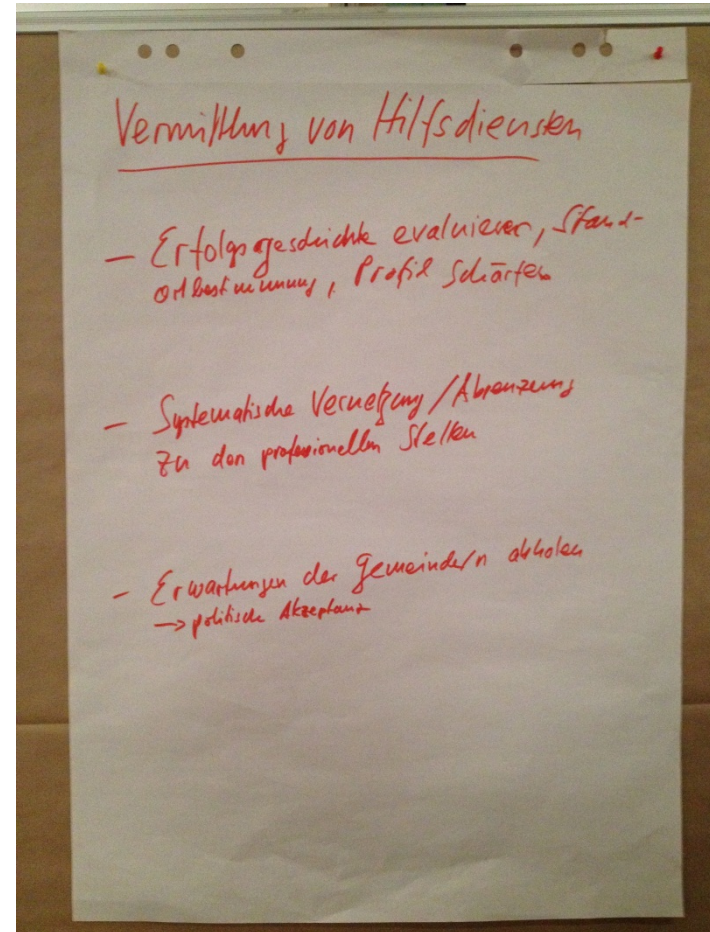 Vermittlung von Hilfsdiensten
– Erfolgsgeschichte evaluieren, Stand-
ortbestimmung, Profil schärfen
– Systematische Vernetzung / Abgrenzung
zu den professionellen Stellen
– Erwartungen der Gemeinde/n abholen
→ politische Akzeptanz